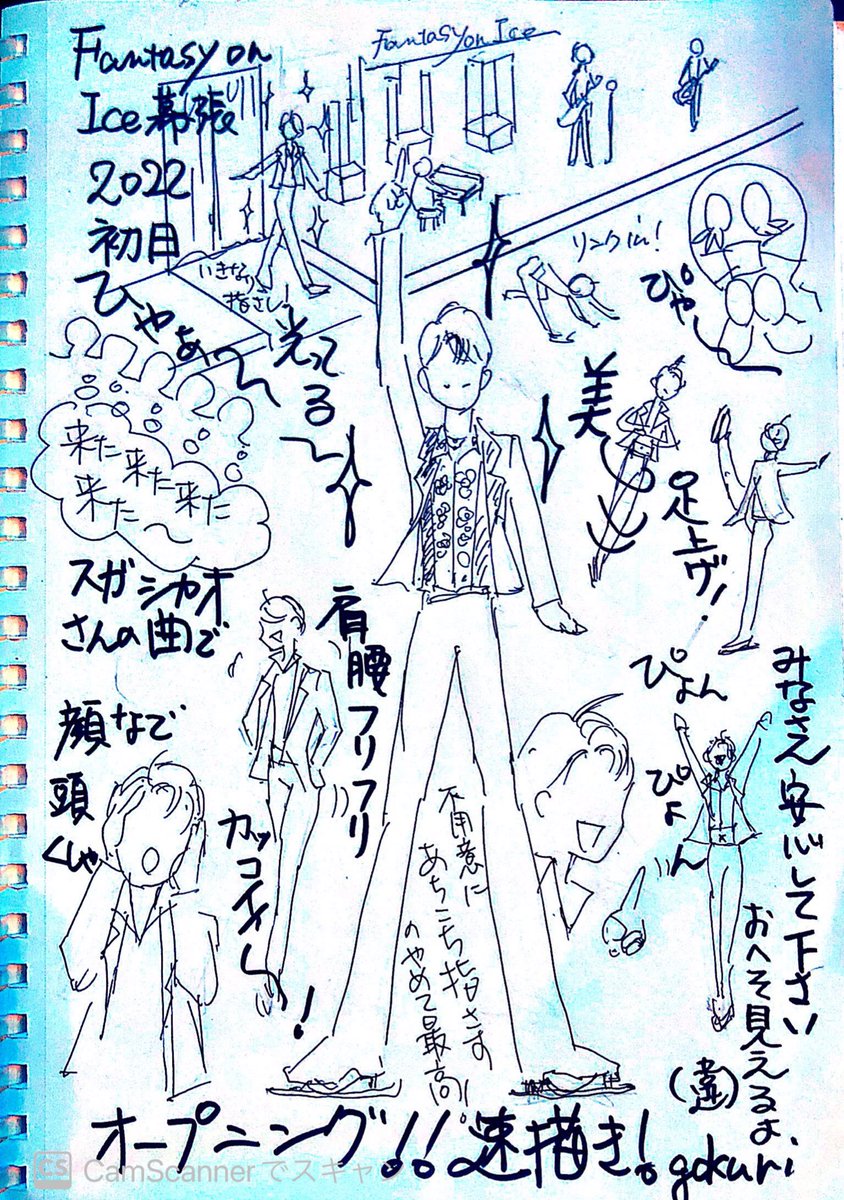 Fantasy on
Ice 幕張
2022
初日
Fantasy on Ice
いきなり
指さし
リンク広!
ぴゃー
ひゃあ〜
光ってる〜
来た
来た
来た
来た〜
美
足上げ!
スガシカオ
さんの曲で
肩腰フリフリ
カッコイイ〜!
顔なで
頭くしゃ
ぴょん
ぴょん
不用意に
あちこち指さす
のやめて最高!
みなさん安心して下さい
おへそ見えるよ
(違)
オープニング!!速描き!
gokuri
CS CamScannerでスキャン